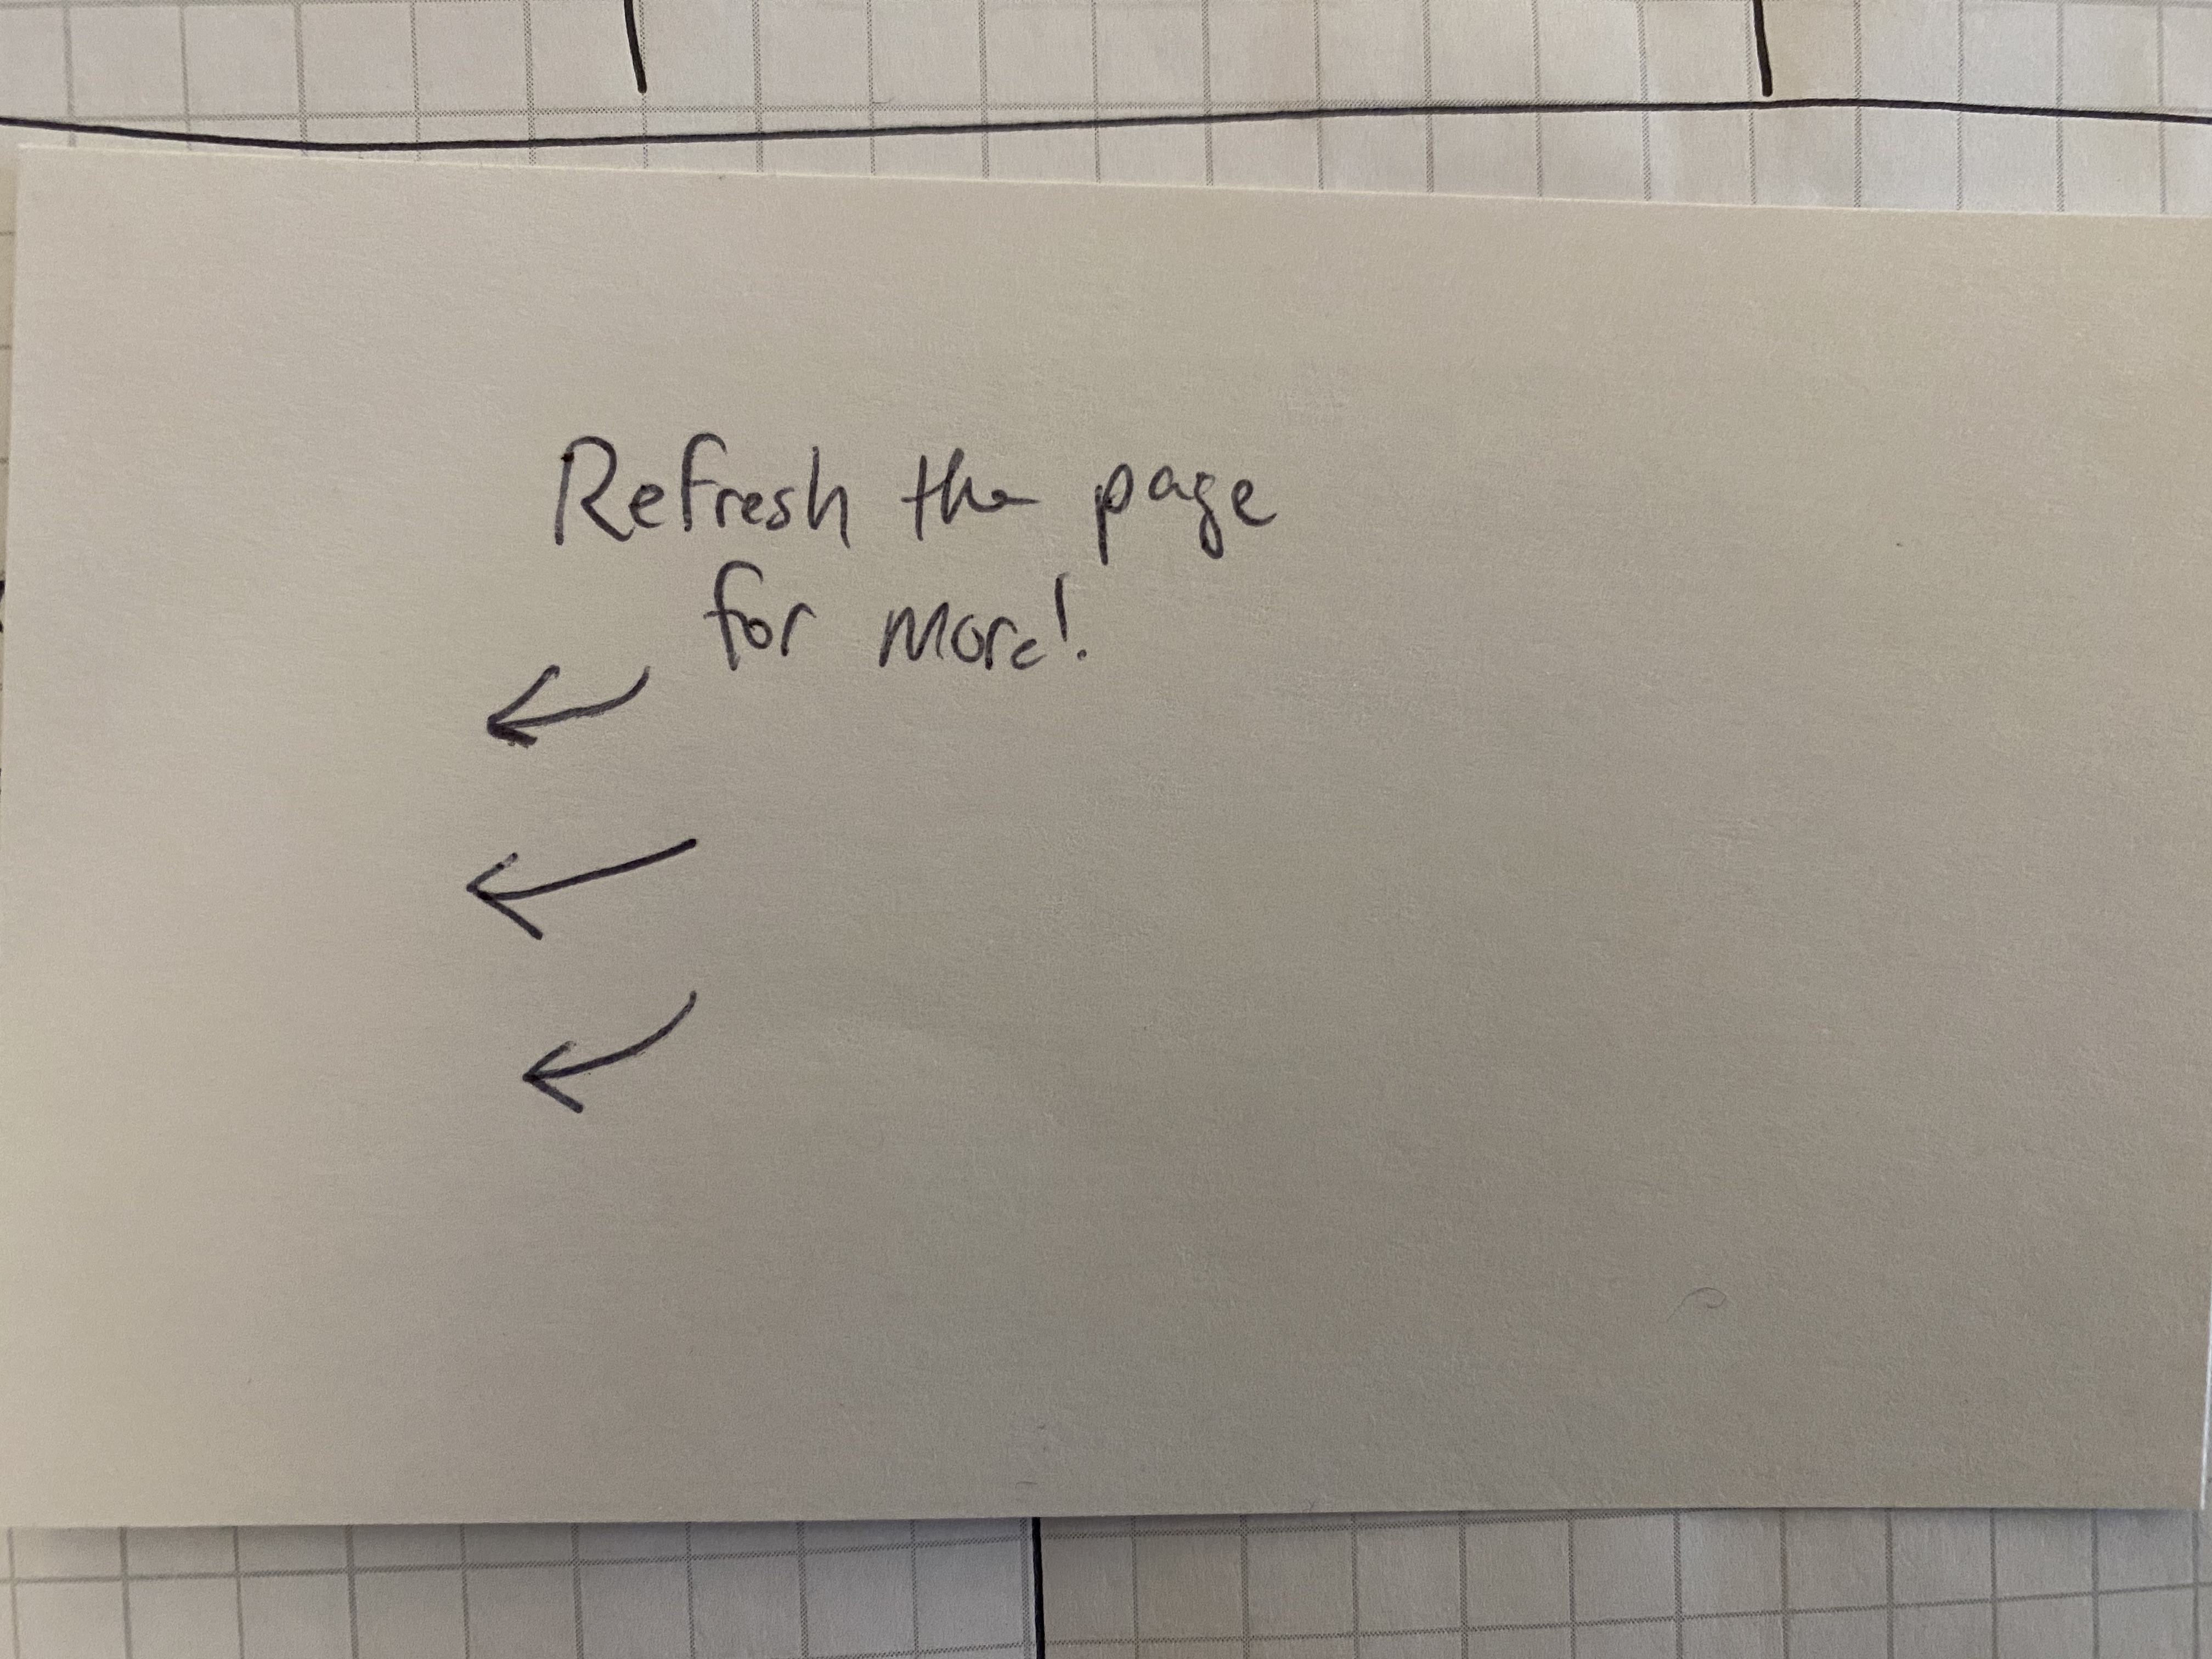 Refresh the page
for more!